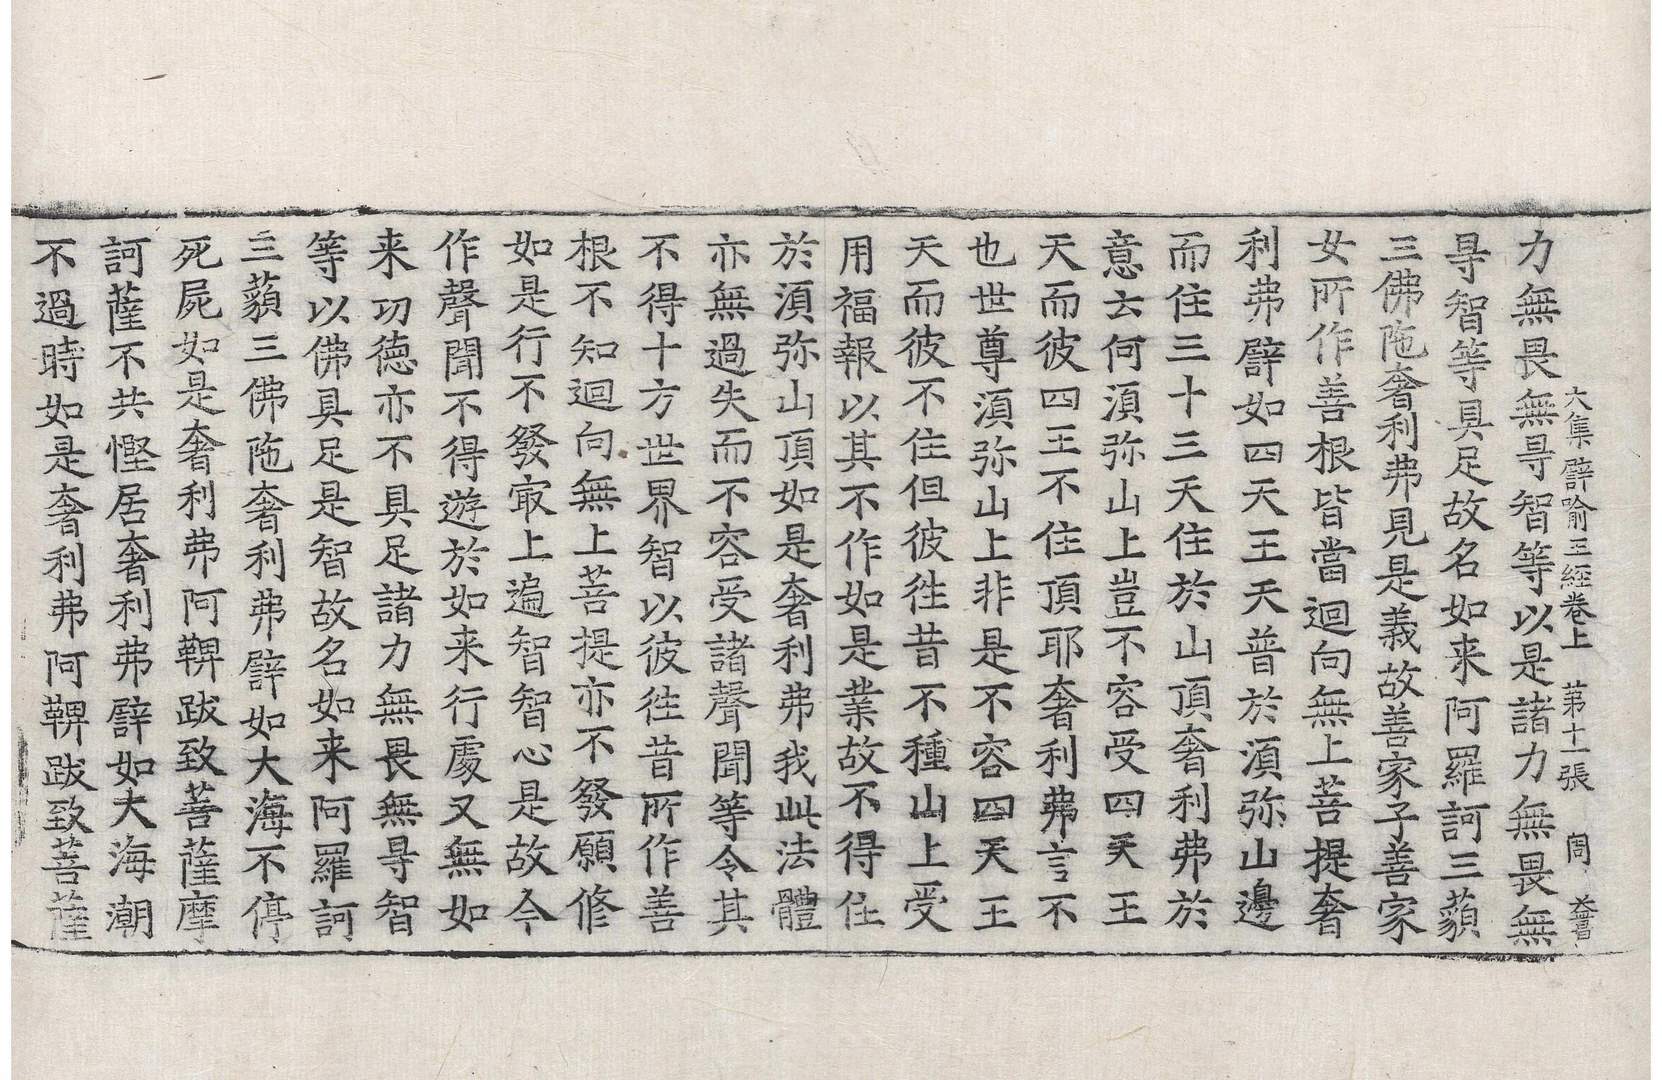 大集譬喻王經卷上 第十一張 周
力無畏無㝵智等以是諸力無畏無
㝵智等具足故名如来阿羅訶三藐
三佛陁奢利弗見是義故善家子善家
女所作善根皆當迴向無上菩提奢
利弗譬如四天王天普於湏弥山邊
而住三十三天住於山頂奢利弗於
意云何湏弥山上豈不容受四天王
天而彼四王不住頂耶奢利弗言不
也世尊湏弥山上非是不容四天王
天而彼不住但彼徃昔不種山上受
用福報以其不作如是業故不得住
於湏弥山頂如是奢利弗我此法體
亦無過失而不容受諸聲聞等令其
不得十方世界智以彼徃昔所作善
根不知迴向無上菩提亦不發願修
如是行不發㝡上遍智智心是故今
作聲聞不得遊於如来行處又無如
来功德亦不具足諸力無畏無㝵智
等以佛具足是智故名如来阿羅訶
三藐三佛陁奢利弗譬如大海不停
死屍如是奢利弗阿鞞跋致菩薩摩
訶薩不共慳居奢利弗譬如大海潮
不過時如是奢利弗阿鞞跋致菩薩